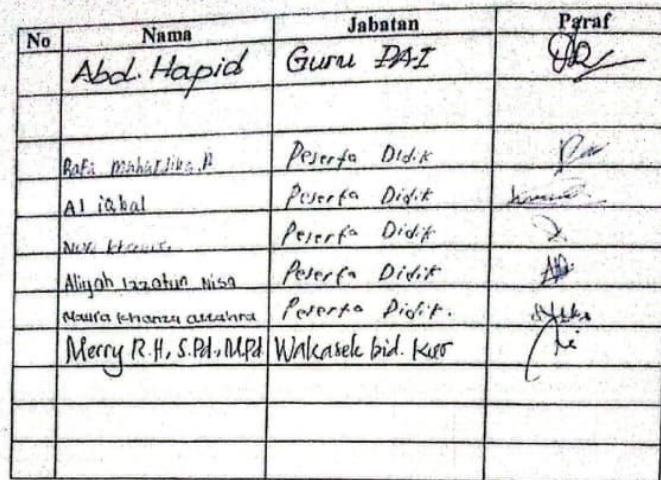 No Nama Jabatan Paraf
Abd. Hapid Guru PAI
Rafi Mahardika.R Peserta Didik
Al iqbal Peserta Didik
Peserta Didik
Aliyah Izzatun Nisa Peserta Didik
Naura Khanza azzahra Peserta Didik.
Merry R.H, S.Pd., M.Pd Wakasek bid. Kur